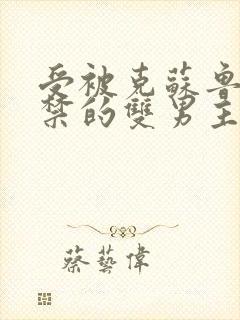 受被克蘇魯
禁的雙男主
蔡藝偉